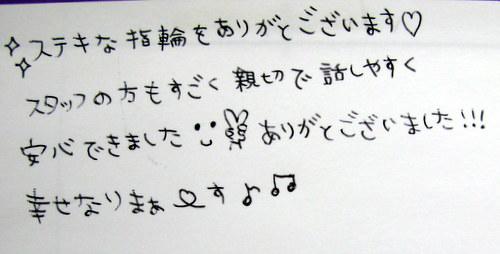 ステキな指輪をありがとうございます♡
スタッフの方もすごく親切で話しやすく
安心できましたありがとうございました!!!
幸せなりまぁす♪♫